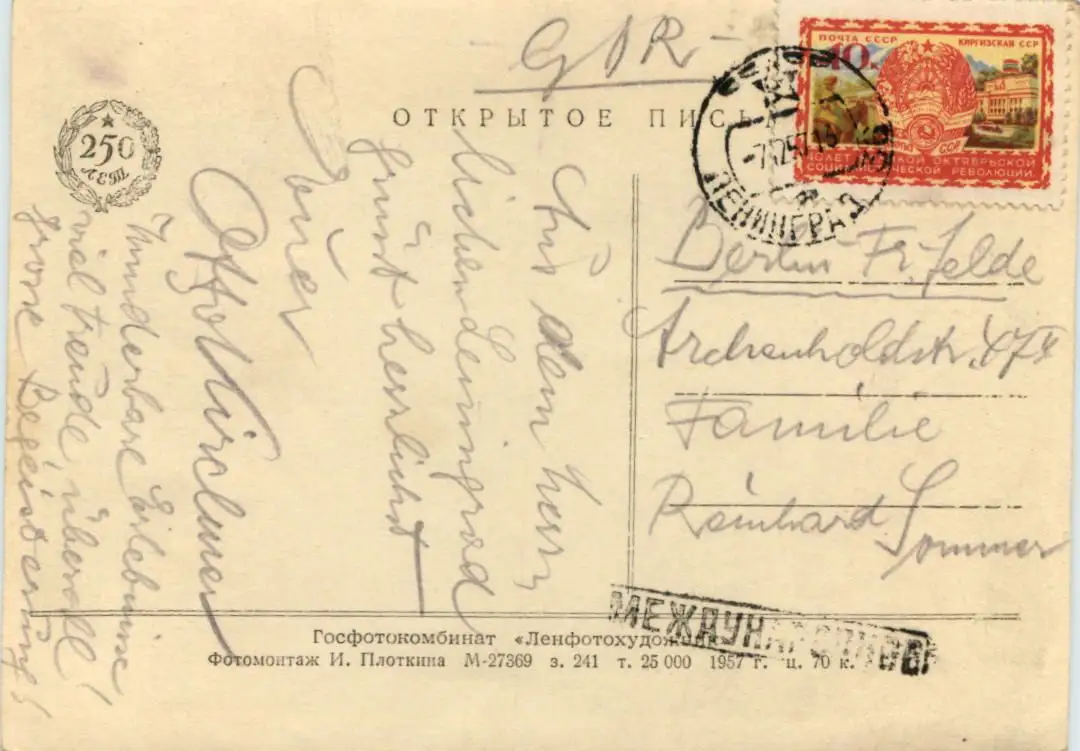 GDR
ОТКРЫТОЕ ПИСЬ
ПОЧТА СССР
КИРГИЗСКАЯ ССР
10 к
40 ЛЕТ ВЕЛИКОЙ ОКТЯБРЬСКОЙ
СОЦИАЛИСТИЧЕСКОЙ РЕВОЛЮЦИИ
ЛЕНИНГРАД
250
ЛЕТ
Aus dem herr
lichen Leningrad
grüßt herzlichst
Euer
Otto Kirchner
Wunderbare Erlebnisse
viel Freude überall!
grosse Begeisterung!
Berlin Fr. felde
Archenholdstr. 47
Familie
Reinhard Sommer
МЕЖДУНАРОДНОЕ
Госфотокомбинат «Ленфотохудожник»
Фотомонтаж И. Плоткина М-27369 з. 241 т. 25 000 1957 г. ц. 70 к.